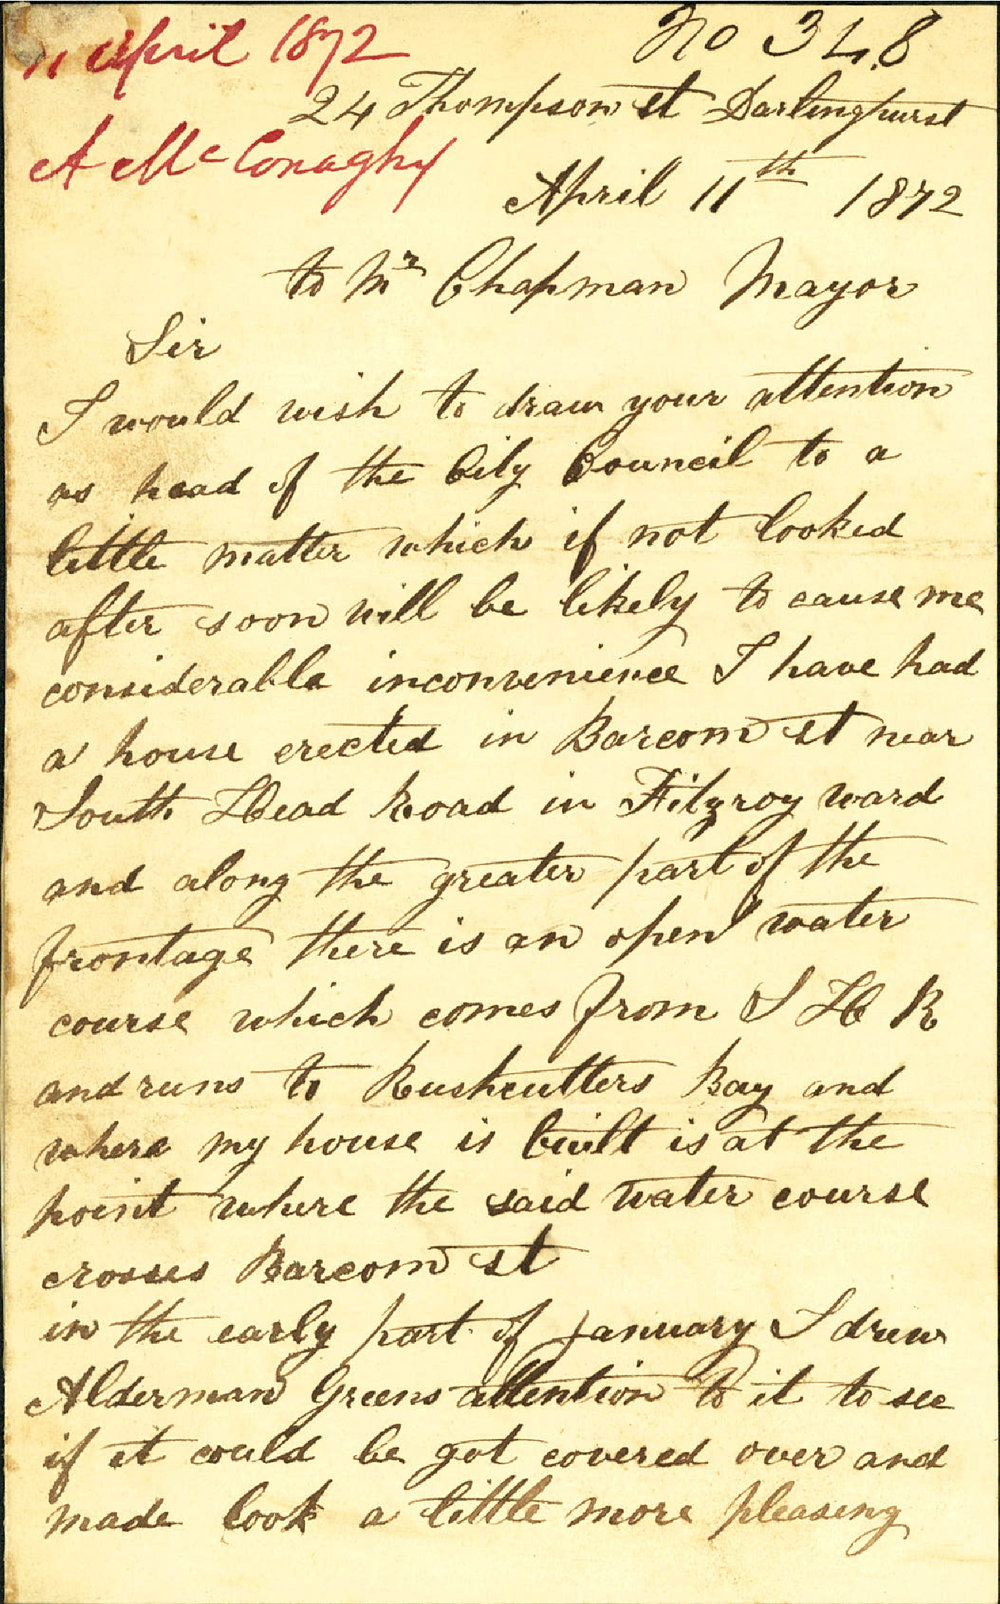 11 April 1872
No 348
24 Thompson st Darlinghurst
A McConaghy
April 11th 1872
to Mr Chapman Mayor
Sir
I would wish to draw your attention
as head of the City Council to a
little matter which if not looked
after soon will be likely to cause me
considerable inconvenience I have had
a house erected in Barcom st near
South Head Road in Fitzroy ward
and along the greater part of the
frontage there is an open water
course which comes from S H R
and runs to Rushcutters Bay and
where my house is built is at the
point where the said water course
crosses Barcom st
in the early part of january I drew
Alderman Greens attention to it to see
if it could be got covered over and
made look a little more pleasing